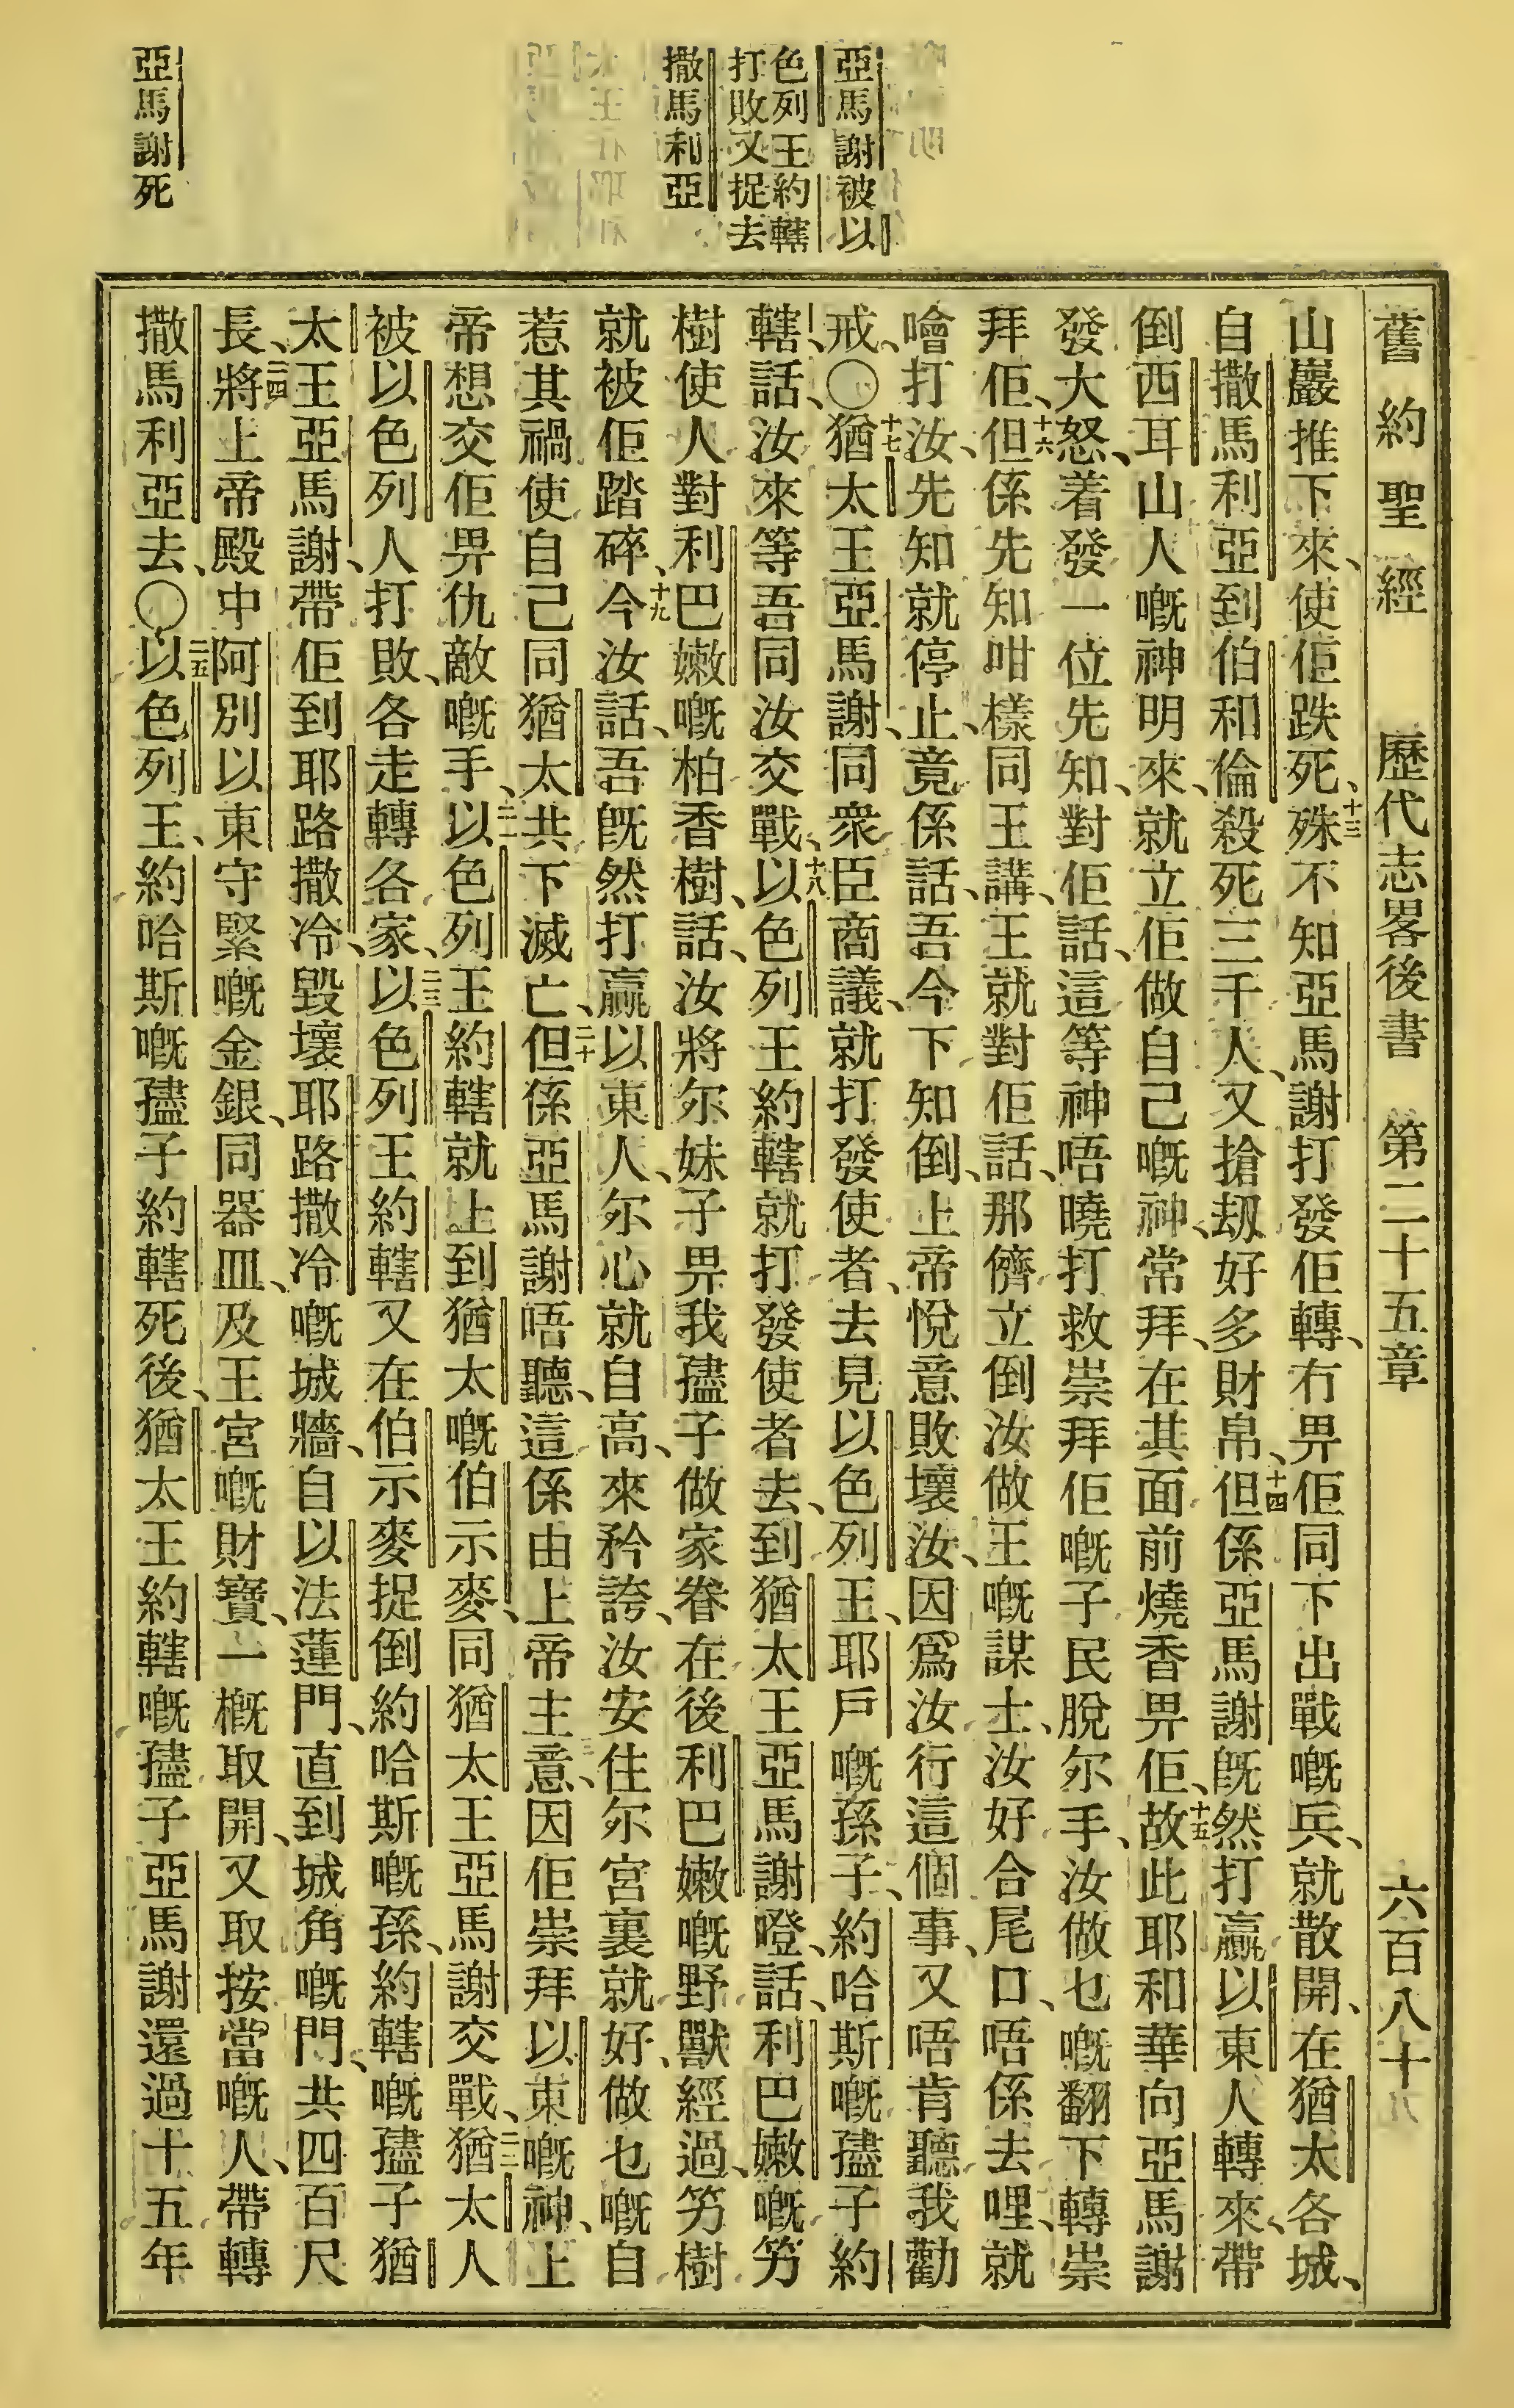 亞馬謝被以
色列王約轄
打敗又捉去
撒馬利亞
亞馬謝死
舊約聖經 歷代志畧後書 第二十五章 六百八十
山巖推下來、使佢跌死、十三殊不知亞馬謝打發佢轉、冇畀佢同下出戰嘅兵、就散開、在猶太各城、
自撒馬利亞到伯和倫、殺死三千人、又搶刼好多財帛、十四但係亞馬謝旣然打贏以東人轉來、帶
倒西耳山人嘅神明來、就立佢做自己嘅神、常拜、在其面前燒香畀佢、十五故此耶和華向亞馬謝
發大怒、着發一位先知、對佢話、這等神唔曉打救崇拜佢嘅子民脫尔手、汝做乜嘅翻下轉崇
拜佢、十六但係先知咁樣同王講、王就對佢話、那儕立倒汝做王嘅謀士、汝好合尾口、唔係去哩、就
噲打汝、先知就停止、竟係話、吾今下知倒、上帝悅意敗壞汝、因爲汝行這個事、又唔肯聽我勸
戒、〇十七猶太王亞馬謝、同衆臣商議、就打發使者、去見以色列王、耶戶嘅孫子、約哈斯嘅孻子約
轄、話、汝來等吾同汝交戰、十八以色列王約轄就打發使者去、到猶太王亞馬謝噔、話、利巴嫩嘅竻
樹使人對利巴嫩嘅柏香樹、話、汝將尔妹子畀我孻子做家眷、在後利巴嫩嘅野獸經過、竻樹
就被佢踏碎、十九今汝話、吾旣然打贏以東人、尔心就自高、來矜誇、汝安住尔宮裏就好、做乜嘅自
惹其禍、使自己同猶太共下滅亡、二十但係亞馬謝唔聽、這係由上帝主意、因佢崇拜以東嘅神、上
帝想交佢畀仇敵嘅手、二一以色列王約轄就上到猶太嘅伯示麥、同猶太王亞馬謝交戰、二二猶太人
被以色列人打敗、各走轉各家、二三以色列王約轄又在伯示麥捉倒約哈斯嘅孫、約轄嘅孻子猶
太王亞馬謝、帶佢到耶路撒冷、毀壞耶路撒冷嘅城牆、自以法蓮門、直到城角嘅門、共四百尺
長、二四將上帝殿中阿別以東守緊嘅金銀、同器皿、及王宮嘅財寶、一概取開、又取按當嘅人、帶轉
撒馬利亞去、〇二五以色列王、約哈斯嘅孻子約轄死後、猶太王約轄嘅孻子亞馬謝還過十五年